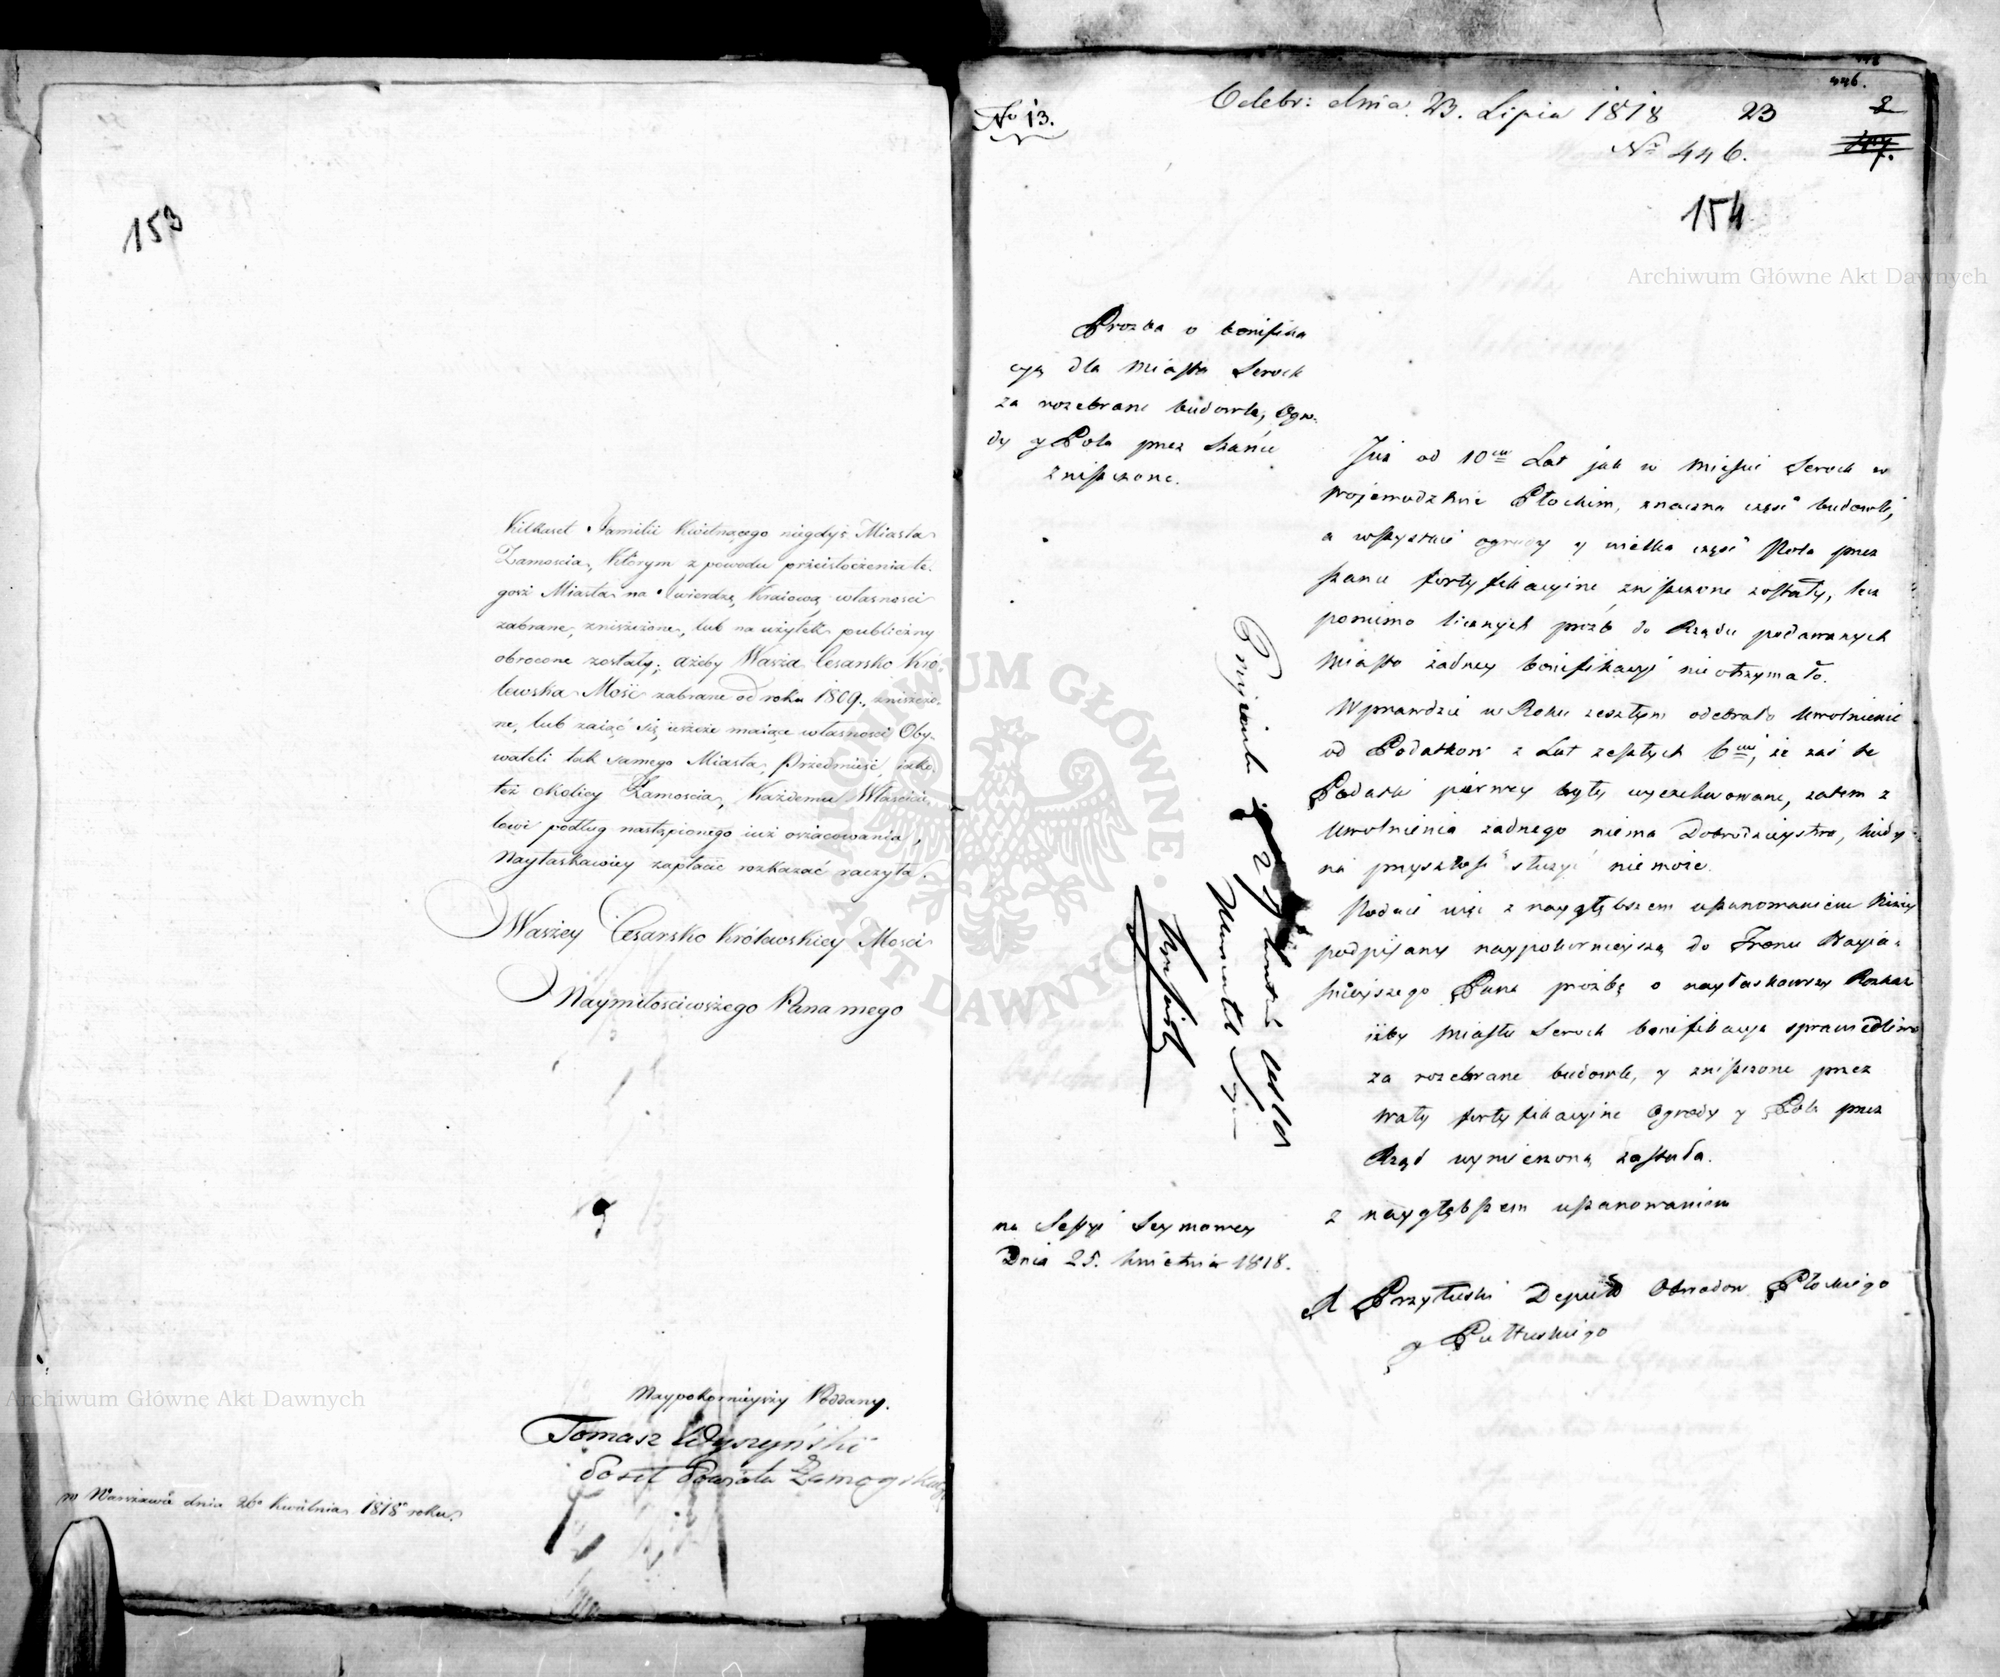 153
Kilkaset Familii Kwitnącego niegdyś Miasta
Zamoscia, którym z powodu przeistoczenia te-
goż Miasta na twierdzę Kraiową własnosci
zabrane, zniszczone, lub na użytek publiczny
obrocone zostały; ażeby Wasza Cesarsko Kró-
lewska Mość zabrane od roku 1809., zniszczo-
ne, lub zaiąć się ieszcze maiące własnosci Oby-
wateli tak samego Miasta, Przedmieść, iako
też okolicy Zamoscia, Każdemu Właścicie-
lowi podług nastąpionego iuż oszacowania,
Nayłaskawiey zapłacić rozkazać raczyła.
Waszey Cesarsko Królewskiey Mosci
Naymiłosciwszego Pana mego
Naypokornieyszy Poddany.
Tomasz Wyszyński
Poseł Powiatu Zamoyskiego
w Warszawie dnia 26o Kwietnia 1818o roku.
No 13.
Odebr: dnia 23. Lipca 1818 23
No 446.
446.
154
Prozba o bonifika
cyą dla Miasta Serock
za rozebrane budowle, Ogro-
dy y Pola przez szańce
zniszczone.
Już od 10ciu Lat jak w Mieście Serock w
Wojewodztwie Płockim, znaczna część budowli,
a wszystkie ogrody y wielka część Pola przez
szańce fortyfikacyine zniszczone zostały, lecz
pomimo licznych prożb do Rządu podawanych
Miasto żadney bonifikacyi nie otrzymało.
Wprawdzie w Roku zeszłym odebrało uwolnienie
od Podatkow z Lat zeszłych 6ciu, że zaś te
Podatki pierwey były wyexekwowane, zatem z
uwolnienia żadnego niema Dobrodzieystwa, kiedy
na przyszłość służyć niemoże.
Podaie więc z naygłębszem uszanowaniem niżey
podpisany naypokornieyszą do Tronu Nayia-
śnieyszego Pana prożbę o nayłaskawszy Rozkaz
iżby Miastu Serock bonifikacya sprawiedliwa
za rozebrane budowle, y zniszczone przez
wały fortyfikacyine Ogrody y Pola przez
Rząd wymierzoną została.
z naygłębszem uszanowaniem
A Przyłuski Deput: Obwodow Płockiego
y Pułtuskiego
na Sessyi Seymowey
Dnia 25. kwietnia 1818.
Archiwum Główne Akt Dawnych
Archiwum Główne Akt Dawnych
ARCHIWUM GŁÓWNE AKT DAWNYCH